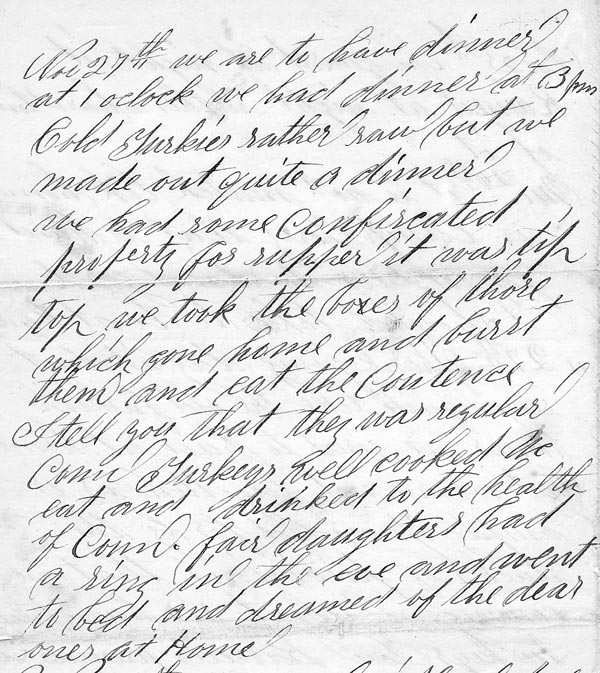 Nov 27th we are to have dinner
at 1 oclock we had dinner at 3 pm
Cold Turkies rather raw but we
made out quite a dinner
we had some Confircated
property for supper it was tip
top we took the boxes of those
which gone home and burst
them and eat the Contence
I tell you that they was regular
Conn Turkeys well cooked We
eat and drinked to the health
of Conn. fair daughters had
a sing in the eve and went
to bed and dreamed of the dear
ones at Home